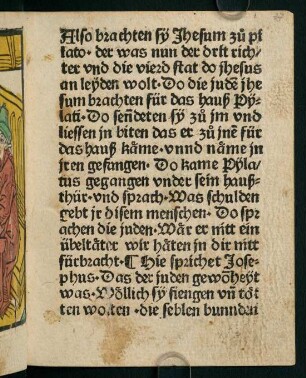 Also brachten sÿ Jhesum zů pi
lato · der was nun der drit rich⸗
ter vnd die vierd stat do jhesus
an leÿden wolt · Do die judē jhe
sum brachten für das hauß Pÿ⸗
lati · Do sendeten sÿ zů jm vnd
liessen in biten das er zů jnē für
das hauß käme · vnnd näme in
jren gefungen · Do kame Pÿla⸗
tus gegangen vnder sein hauß⸗
thür · vnd sprach · Was schulden
gebt jr disem menschen · Do spr
achen die juden · Wär er nitt ein
übeltäter wir häten in dir nitt
fürbracht · ¶ Hie sprichet Jose⸗
phus · Das der juden gewönheÿt
was · Wöllich sÿ fiengen vñ töt
ten wolten · die selben bunnden